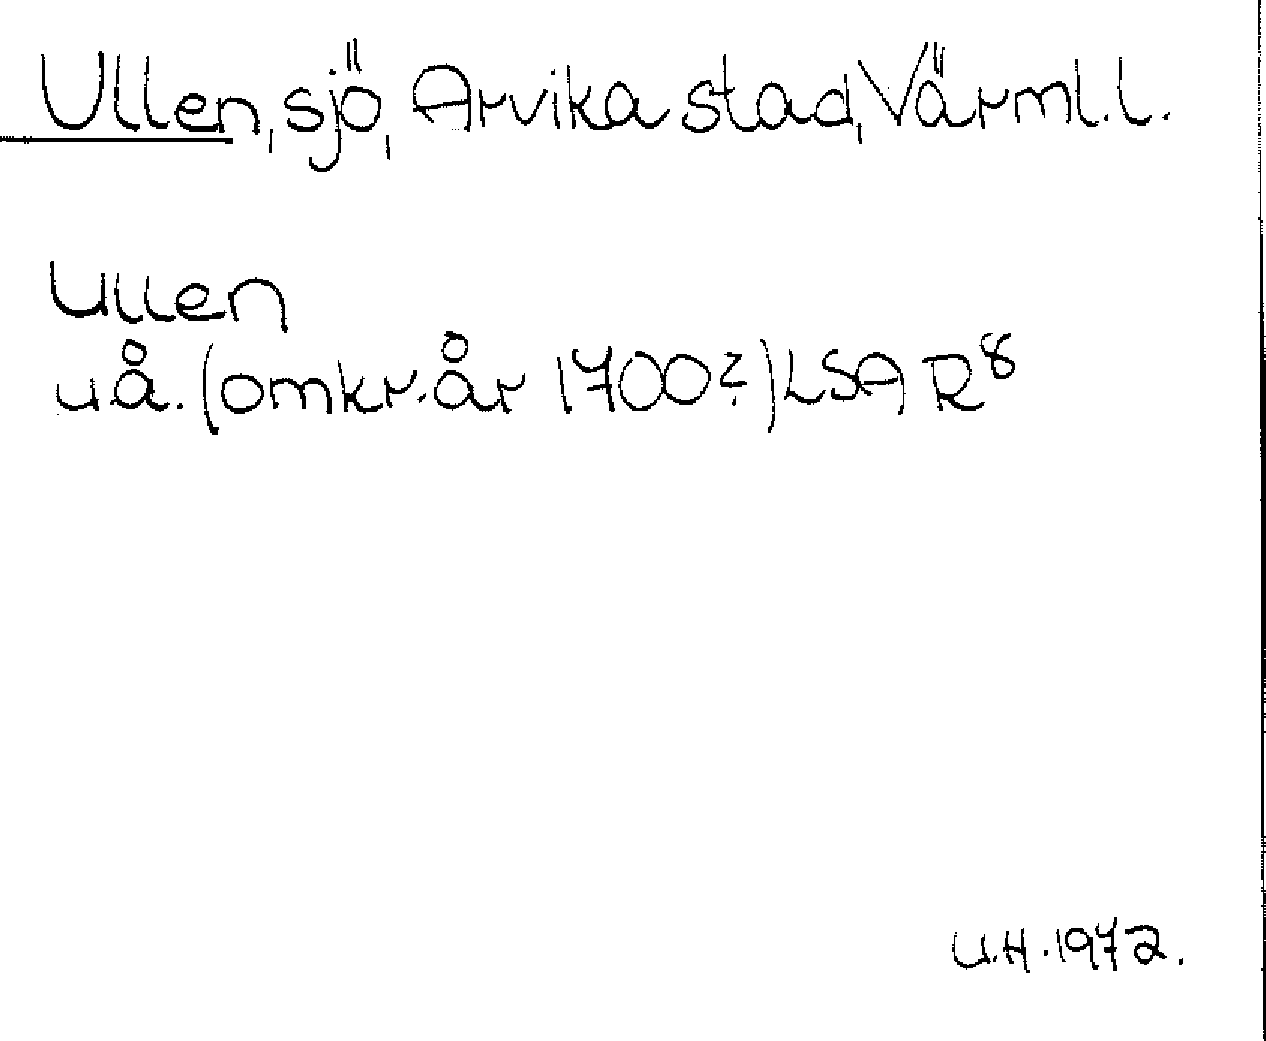 Ullen, sjö, Arvika stad, Värml. l.
Ullen
u.å. (omkr. år 1700?) LSA R⁸
U.H. 1972.